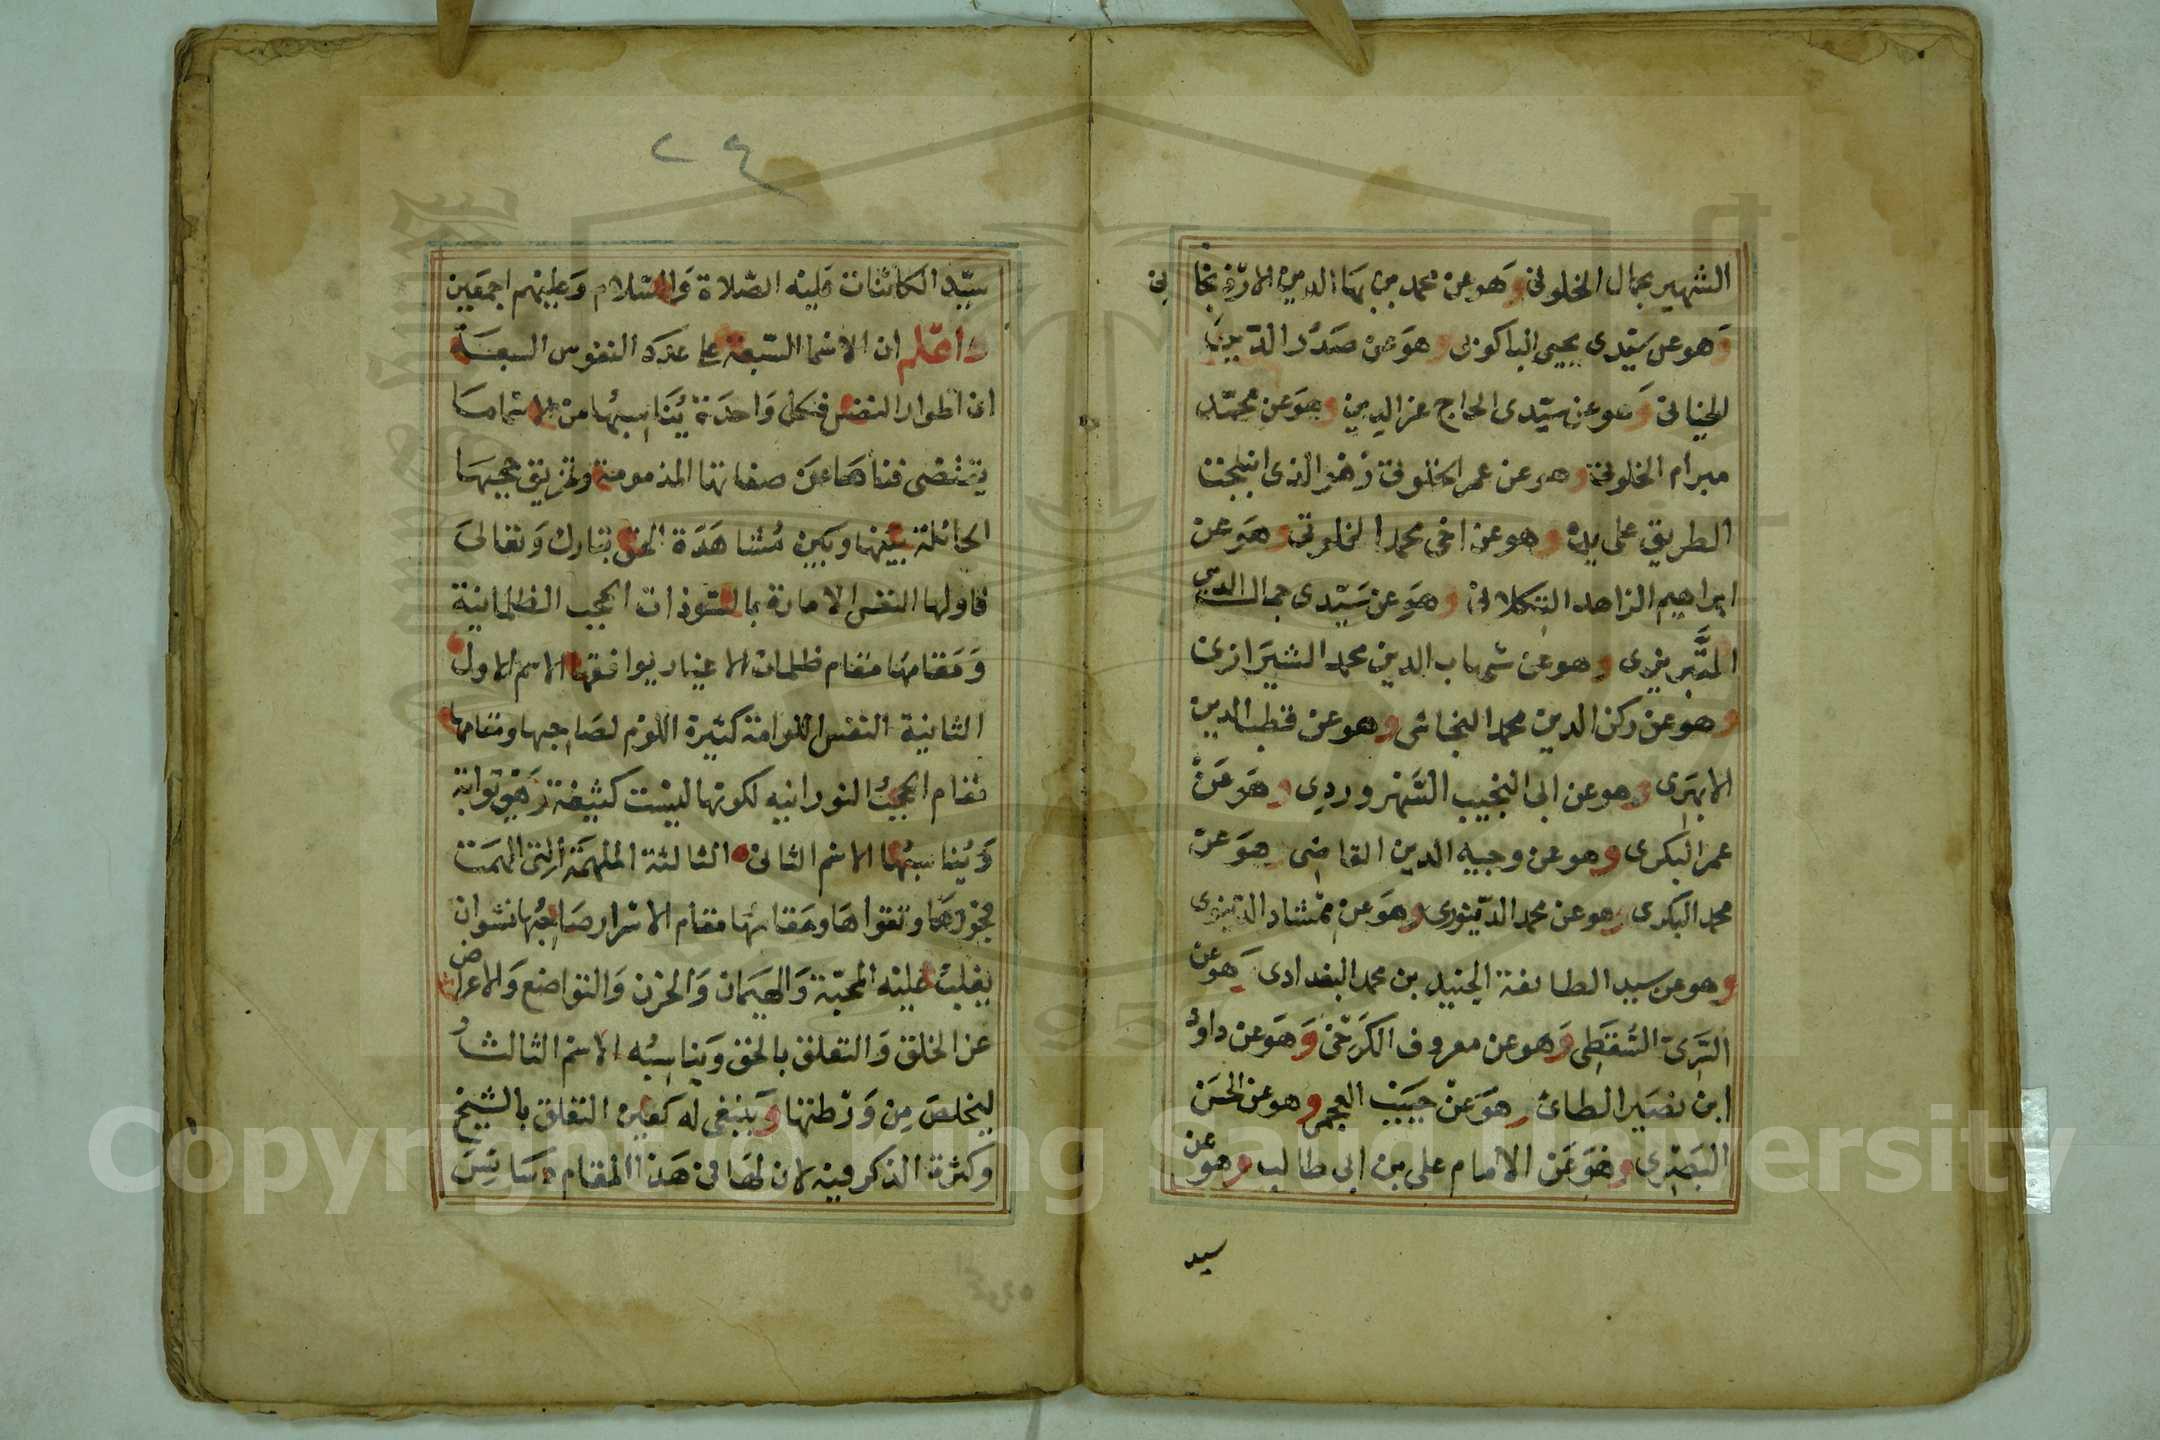 الشهير بجمال الخلوتى وهو عن محمد بن بها الدين الارزنجانى
وهو عن سيدى يحيى الباكوبى وهو عن صدر الدين
الخيانى وهو عن سيدى الحاج عز الدين وهو عن محمد
ميرام الخلوتى وهو عن عمر الخلوتى وهو الذى انبلجت
الطريق على يده وهو عن اخى محمد الخلوتى وهو عن
ابراهيم الزاهد التكلانى وهو عن سيدى جمال الدين
التبريزى وهو عن شهاب الدين محمد الشيرازى
وهو عن ركن الدين محمد النجاشى وهو عن قطب الدين
الابهرى وهو عن ابى النجيب السهروردى وهو عن
عمر البكرى وهو عن وجيه الدين القاضى وهو عن
محمد البكرى وهو عن محمد الدينورى وهو عن ممشاد الدينورى
وهو عن سيد الطائفة الجنيد بن محمد البغدادى وهو عن
السرى السقطى وهو عن معروف الكرخى وهو عن داود
ابن نصير الطائى وهو عن حبيب العجمى وهو عن الحسن
البصرى وهو عن الامام على بن ابى طالب وهو عن
سيد
٢٤
سيد الكائنات عليه الصلاة والسلام وعليهم اجمعين
واعلم ان الاسما السبعة على عدد النفوس السبعة
اى اطوار النفس فكل واحدة يناسبها من الاسما ما
يقتضى فناها عن صفاتها المذمومة وتمزيق حجبها
الحائلة بينها وبين مشاهدة الحق تبارك وتعالى
فاولها النفس الامارة بالسوء ذات الحجب الظلمانية
ومقامها مقام ظلمات الاغيار يوافقها الاسم الاول
الثانية النفس اللوامة كثيرة اللوم لصاحبها ومقامها
مقام الحجب النورانيه لكونها ليست كثيفة وهى توابة
ويناسبها الاسم الثانى الثالثة الملهمة التى الهمت
فجورها وتقواها ومقامها مقام الاسرار صاحبها نشوان
يغلب عليه المحبة والهيمان والحزن والتواضع والاعراض
عن الخلق والتعلق بالحق ويناسبه الاسم الثالث
ليخلص من ورطتها وينبغى له كمين التعلق بالشيخ
وكثرة الذكر فيه لان لها فى هذا المقام دسائس
Copyright © King Saud University